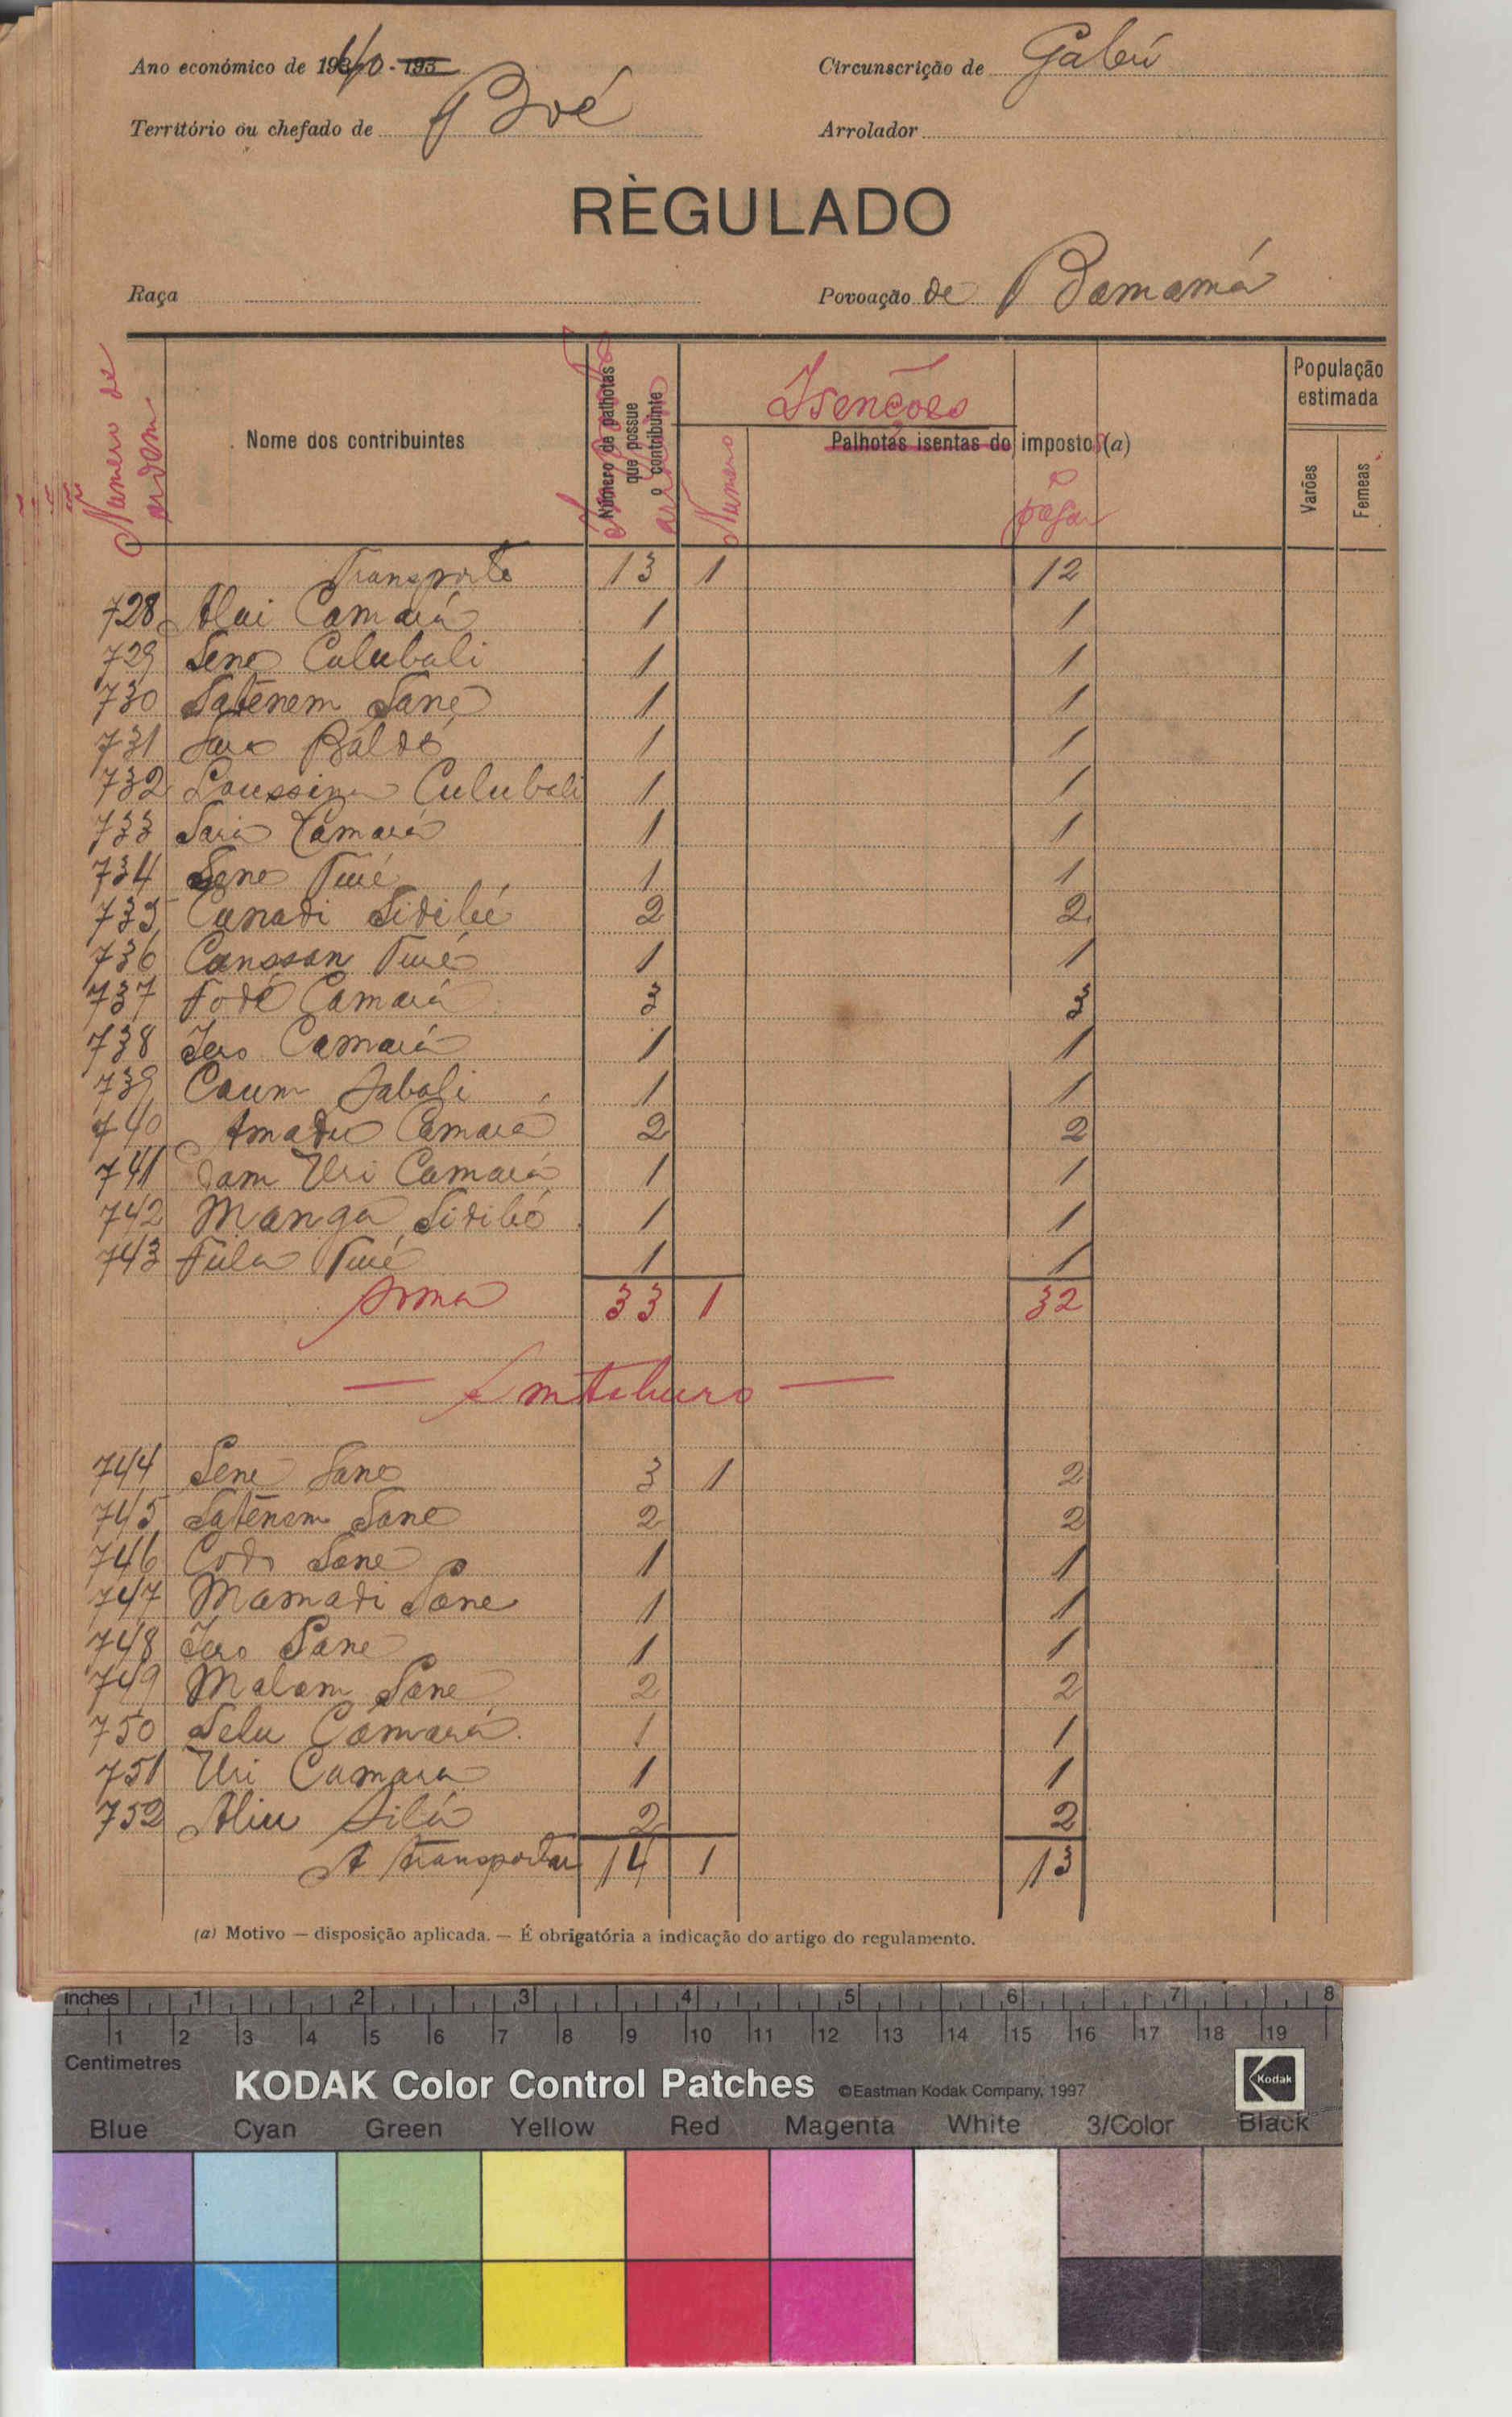 Ano económico de 1940 - 195
Circunscrição de Gabú
Território ou chefado de Boé
Arrolador
RÈGULADO
Raça
Povoação de Bamamá
Numero de ordem
Nome dos contribuintes
Número de palhotas que possue o contribuinte
Isenções
Palhotas isentas do imposto (a)
Numero
pagar
População estimada
Varões
Femeas
Transporte 13 1 12
728 Alai Camará 1 1
729 Sene Culubali 1 1
730 Saténem Sane 1 1
731 Baldé 1 1
732 Lanssina Culubali 1 1
733 Camará 1 1
734 Sene Turé 1 1
735 Canadi Sidibé 2 2
736 Cansson Turé 1 1
737 Fodé Camará 3 3
738 Iero Camará 1 1
739 Saboli 1 1
740 Amadu Camará 2 2
741 Uri Camará 1 1
742 Manga Sidibé 1 1
743 Fula Turé 1 1
soma 33 1 32
744 Sene Sane 3 1 2
745 Saténem Sane 2 2
746 Sane 1 1
747 Mamadi Sane 1 1
748 Iero Sane 1 1
749 Malam Sane 2 2
750 Selu Camará 1 1
751 Uri Camara 1 1
752 Aliu Silá 2 2
A transportar 14 1 13
(a) Motivo — disposição aplicada. — É obrigatória a indicação do artigo do regulamento.
inches 1 2 3 4 5 6 7 8
1 2 3 4 5 6 7 8 9 10 11 12 13 14 15 16 17 18 19
Centimetres
KODAK Color Control Patches ©Eastman Kodak Company, 1997 Kodak
Blue Cyan Green Yellow Red Magenta White 3/Color Black